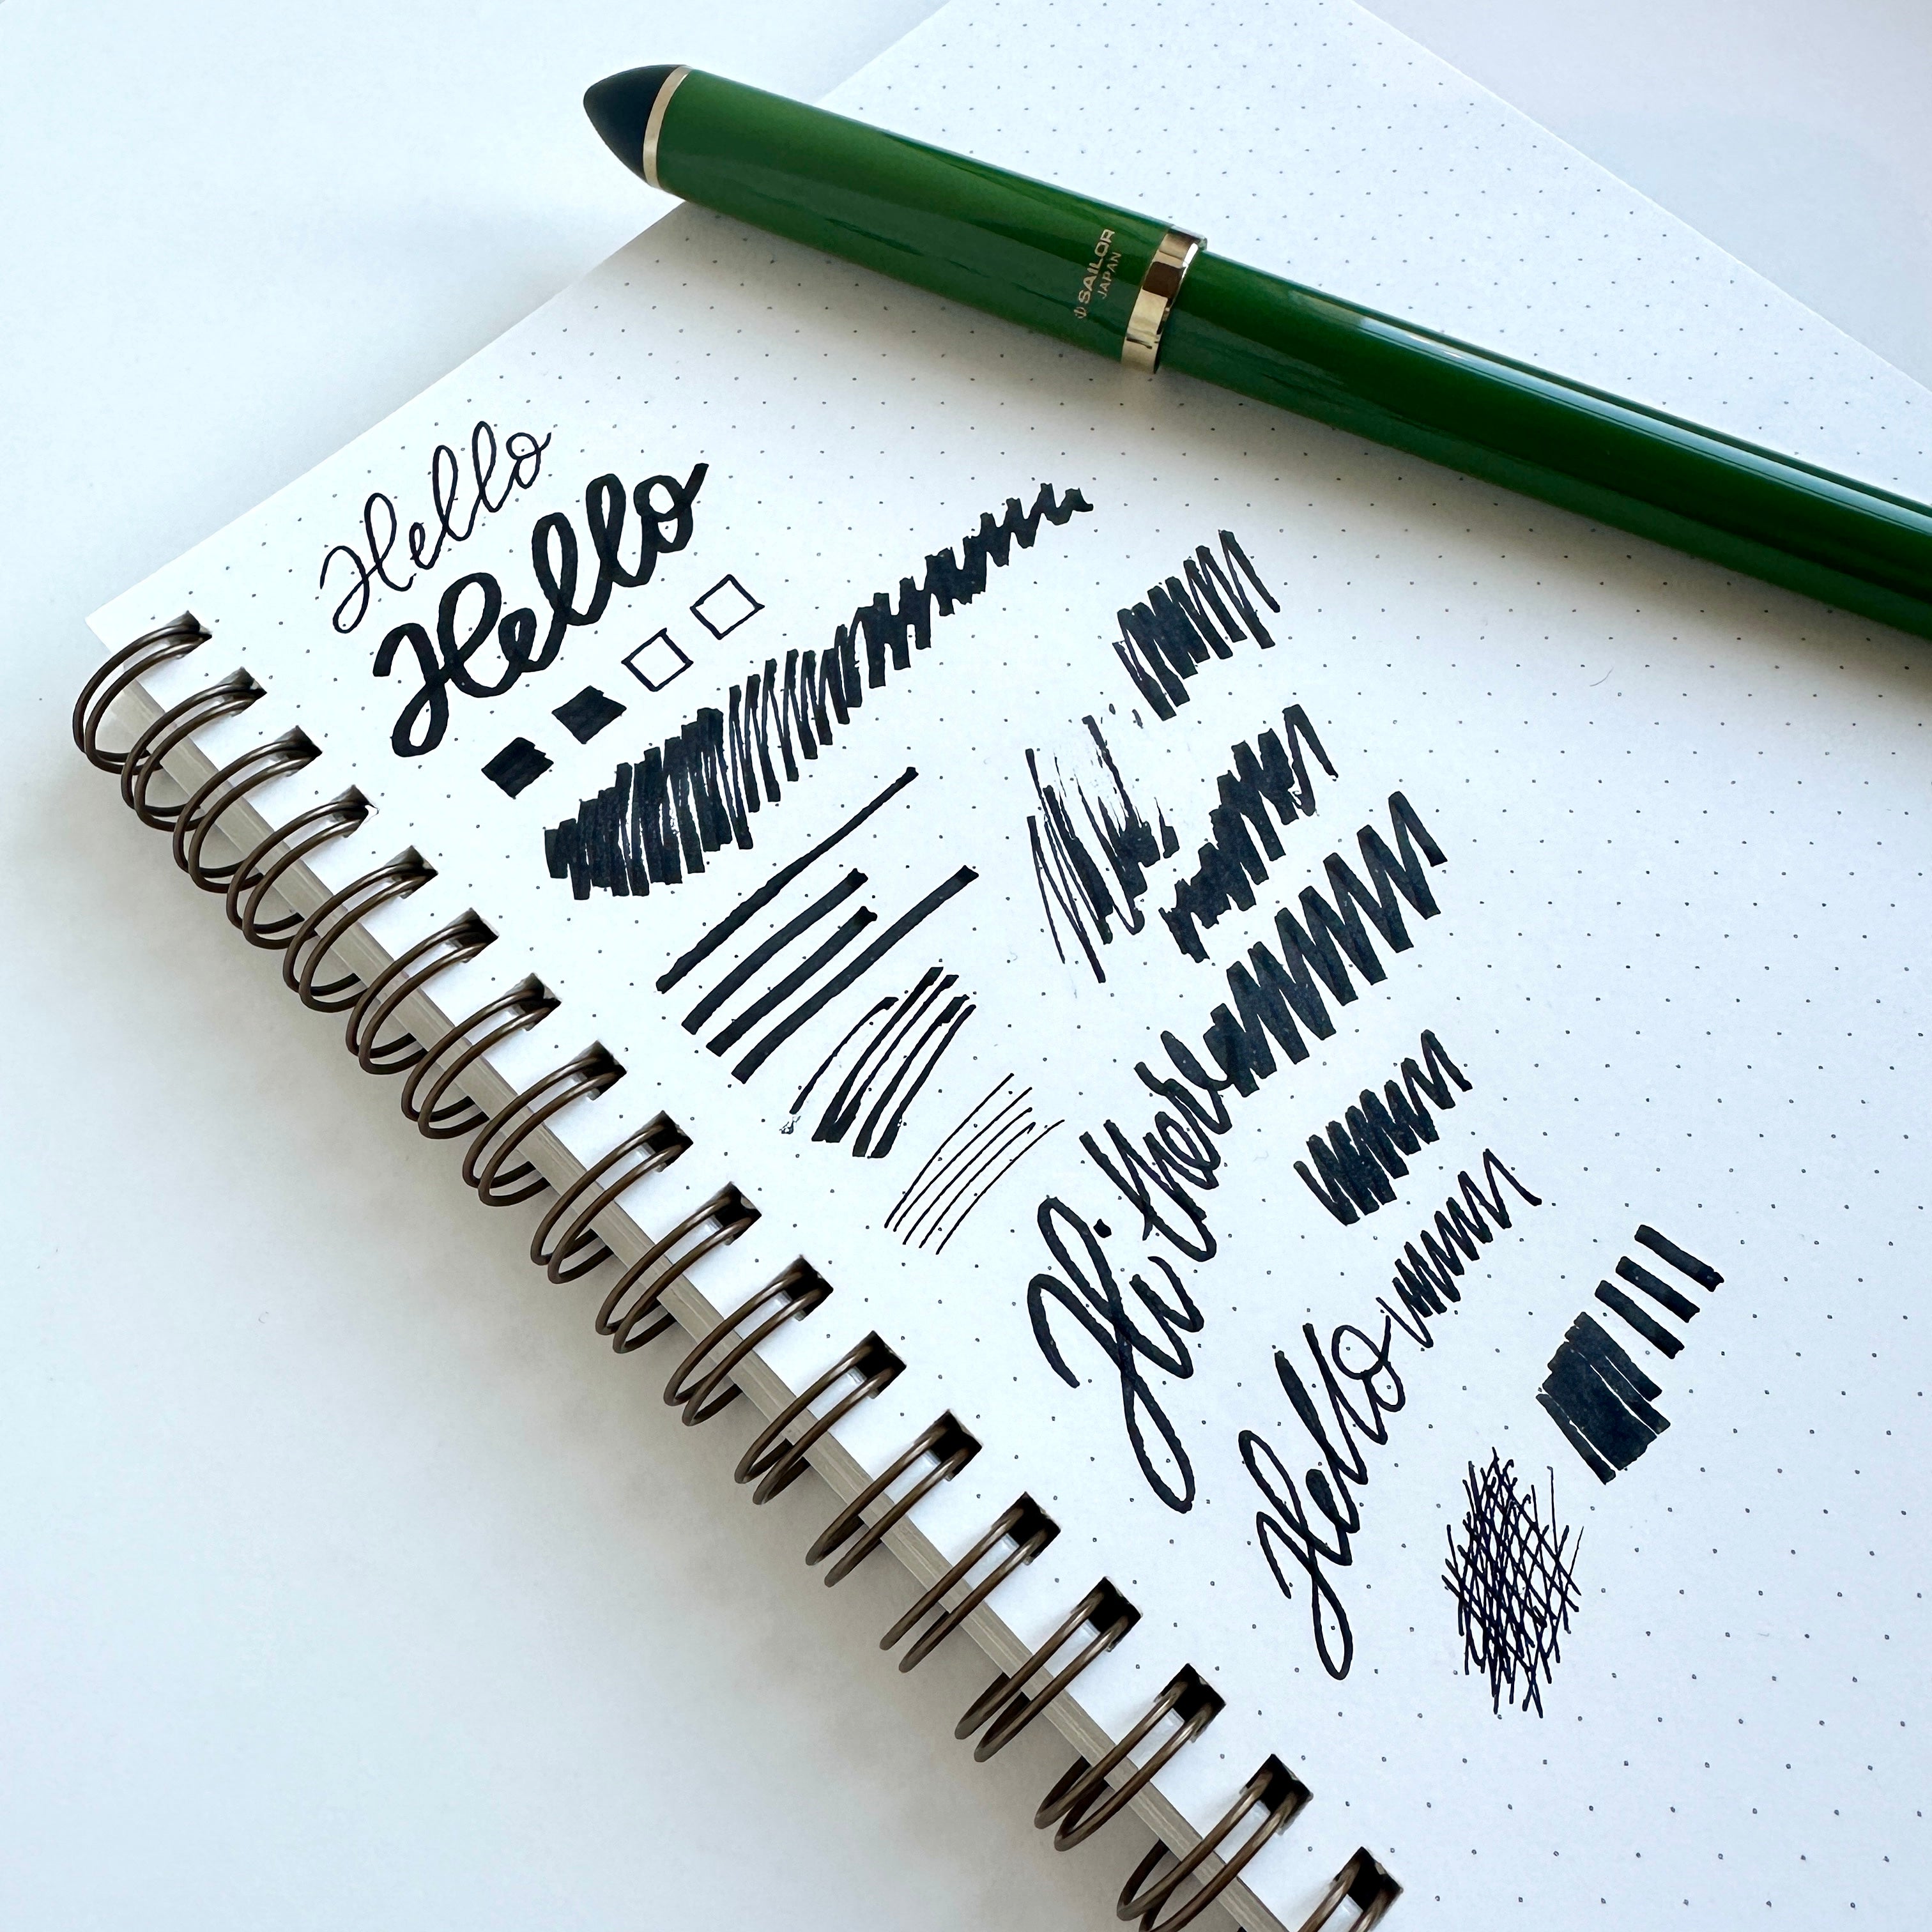 SAILOR
JAPAN
Hello
Hello
Hi there
Hello